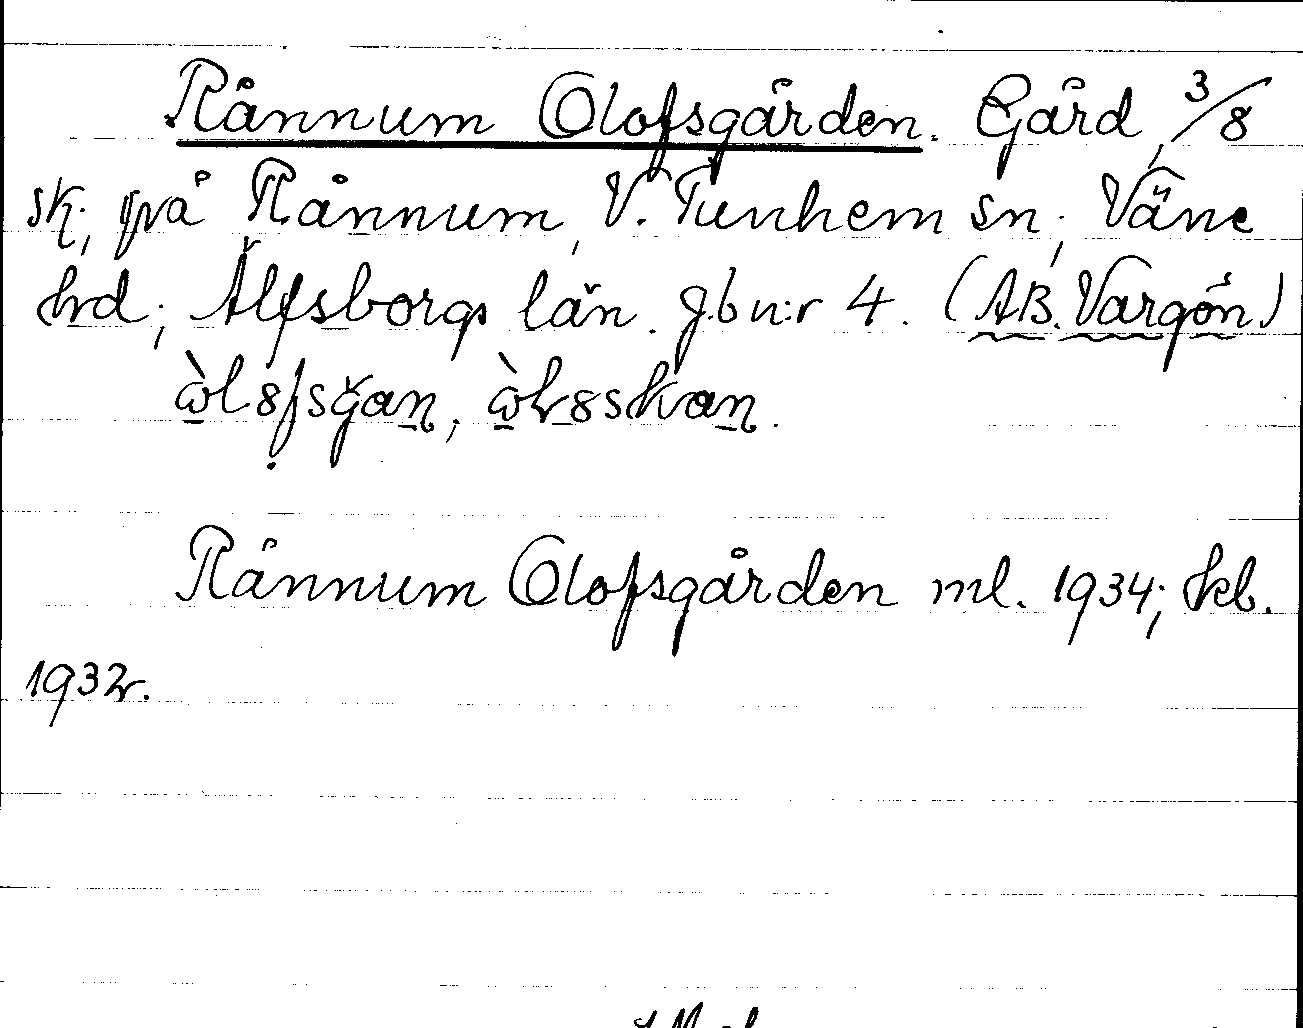 Rånnum Olofsgården. Gård, 3/8
sk; på Rånnum, V. Tunhem sn; Väne
hd; Älfsborgs län. Jb n:r 4. (AB. Vargön)
Rånnum Olofsgården ml. 1934; kb.
1932.